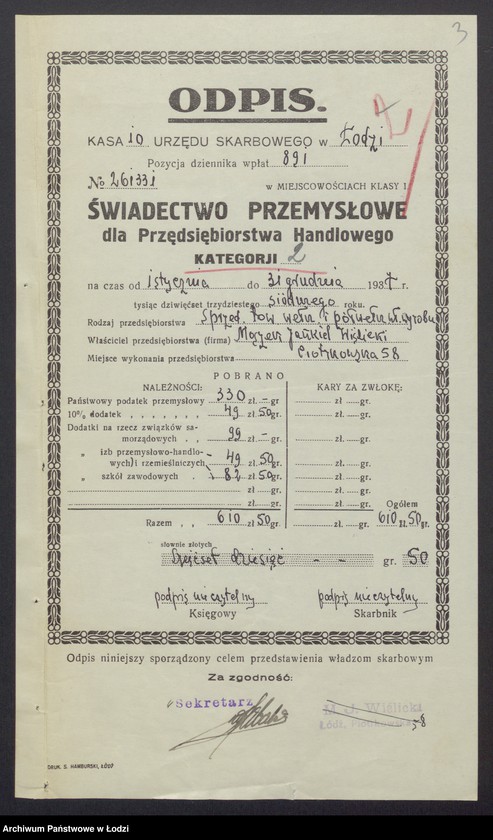 3
ODPIS.
KASA 10 URZĘDU SKARBOWEGO w Łodzi
Pozycja dziennika wpłat 891
№ 261331
w MIEJSCOWOŚCIACH KLASY I
ŚWIADECTWO PRZEMYSŁOWE
dla Przędsiębiorstwa Handlowego
KATEGORJI 2
na czas od 1 stycznia do 31 grudnia 1937 r.
tysiąc dziewięćset trzydziestego siódmego roku.
Rodzaj przedsiębiorstwa Sprzed. tow. wełn. i półwełn. wł. wyrobu
Właściciel przedsiębiorstwa (firma) Jankiel Wiślicki
Miejsce wykonania przedsiębiorstwa Piotrkowska 58
POBRANO
NALEŻNOŚCI: KARY ZA ZWŁOKĘ:
Państwowy podatek przemysłowy 330 zł. – gr. zł. gr.
10% dodatek 49 zł. 50 gr. zł. gr.
Dodatki na rzecz związków sa-
morządowych 99 zł. – gr. zł. gr.
„ izb przemysłowo-handlo-
wych i rzemieślniczych 49 zł. 50 gr. zł. gr.
„ szkół zawodowych 82 zł. 50 gr. zł. gr.
zł. gr. zł. gr.
zł. gr. Ogółem
Razem 610 zł. 50 gr. zł. gr. 610 zł. 50 gr.
słownie złotych
Sześćset dziesięć – – gr. 50
podpis nieczytelny podpis nieczytelny
Księgowy Skarbnik
Odpis niniejszy sporządzony celem przedstawienia władzom skarbowym
Za zgodność:
Sekretarz
M. J. Wiślicki
Łódź, Piotrkowska 58
DRUK. S. HAMBURSKI, ŁÓDŹ
Archiwum Państwowe w Łodzi